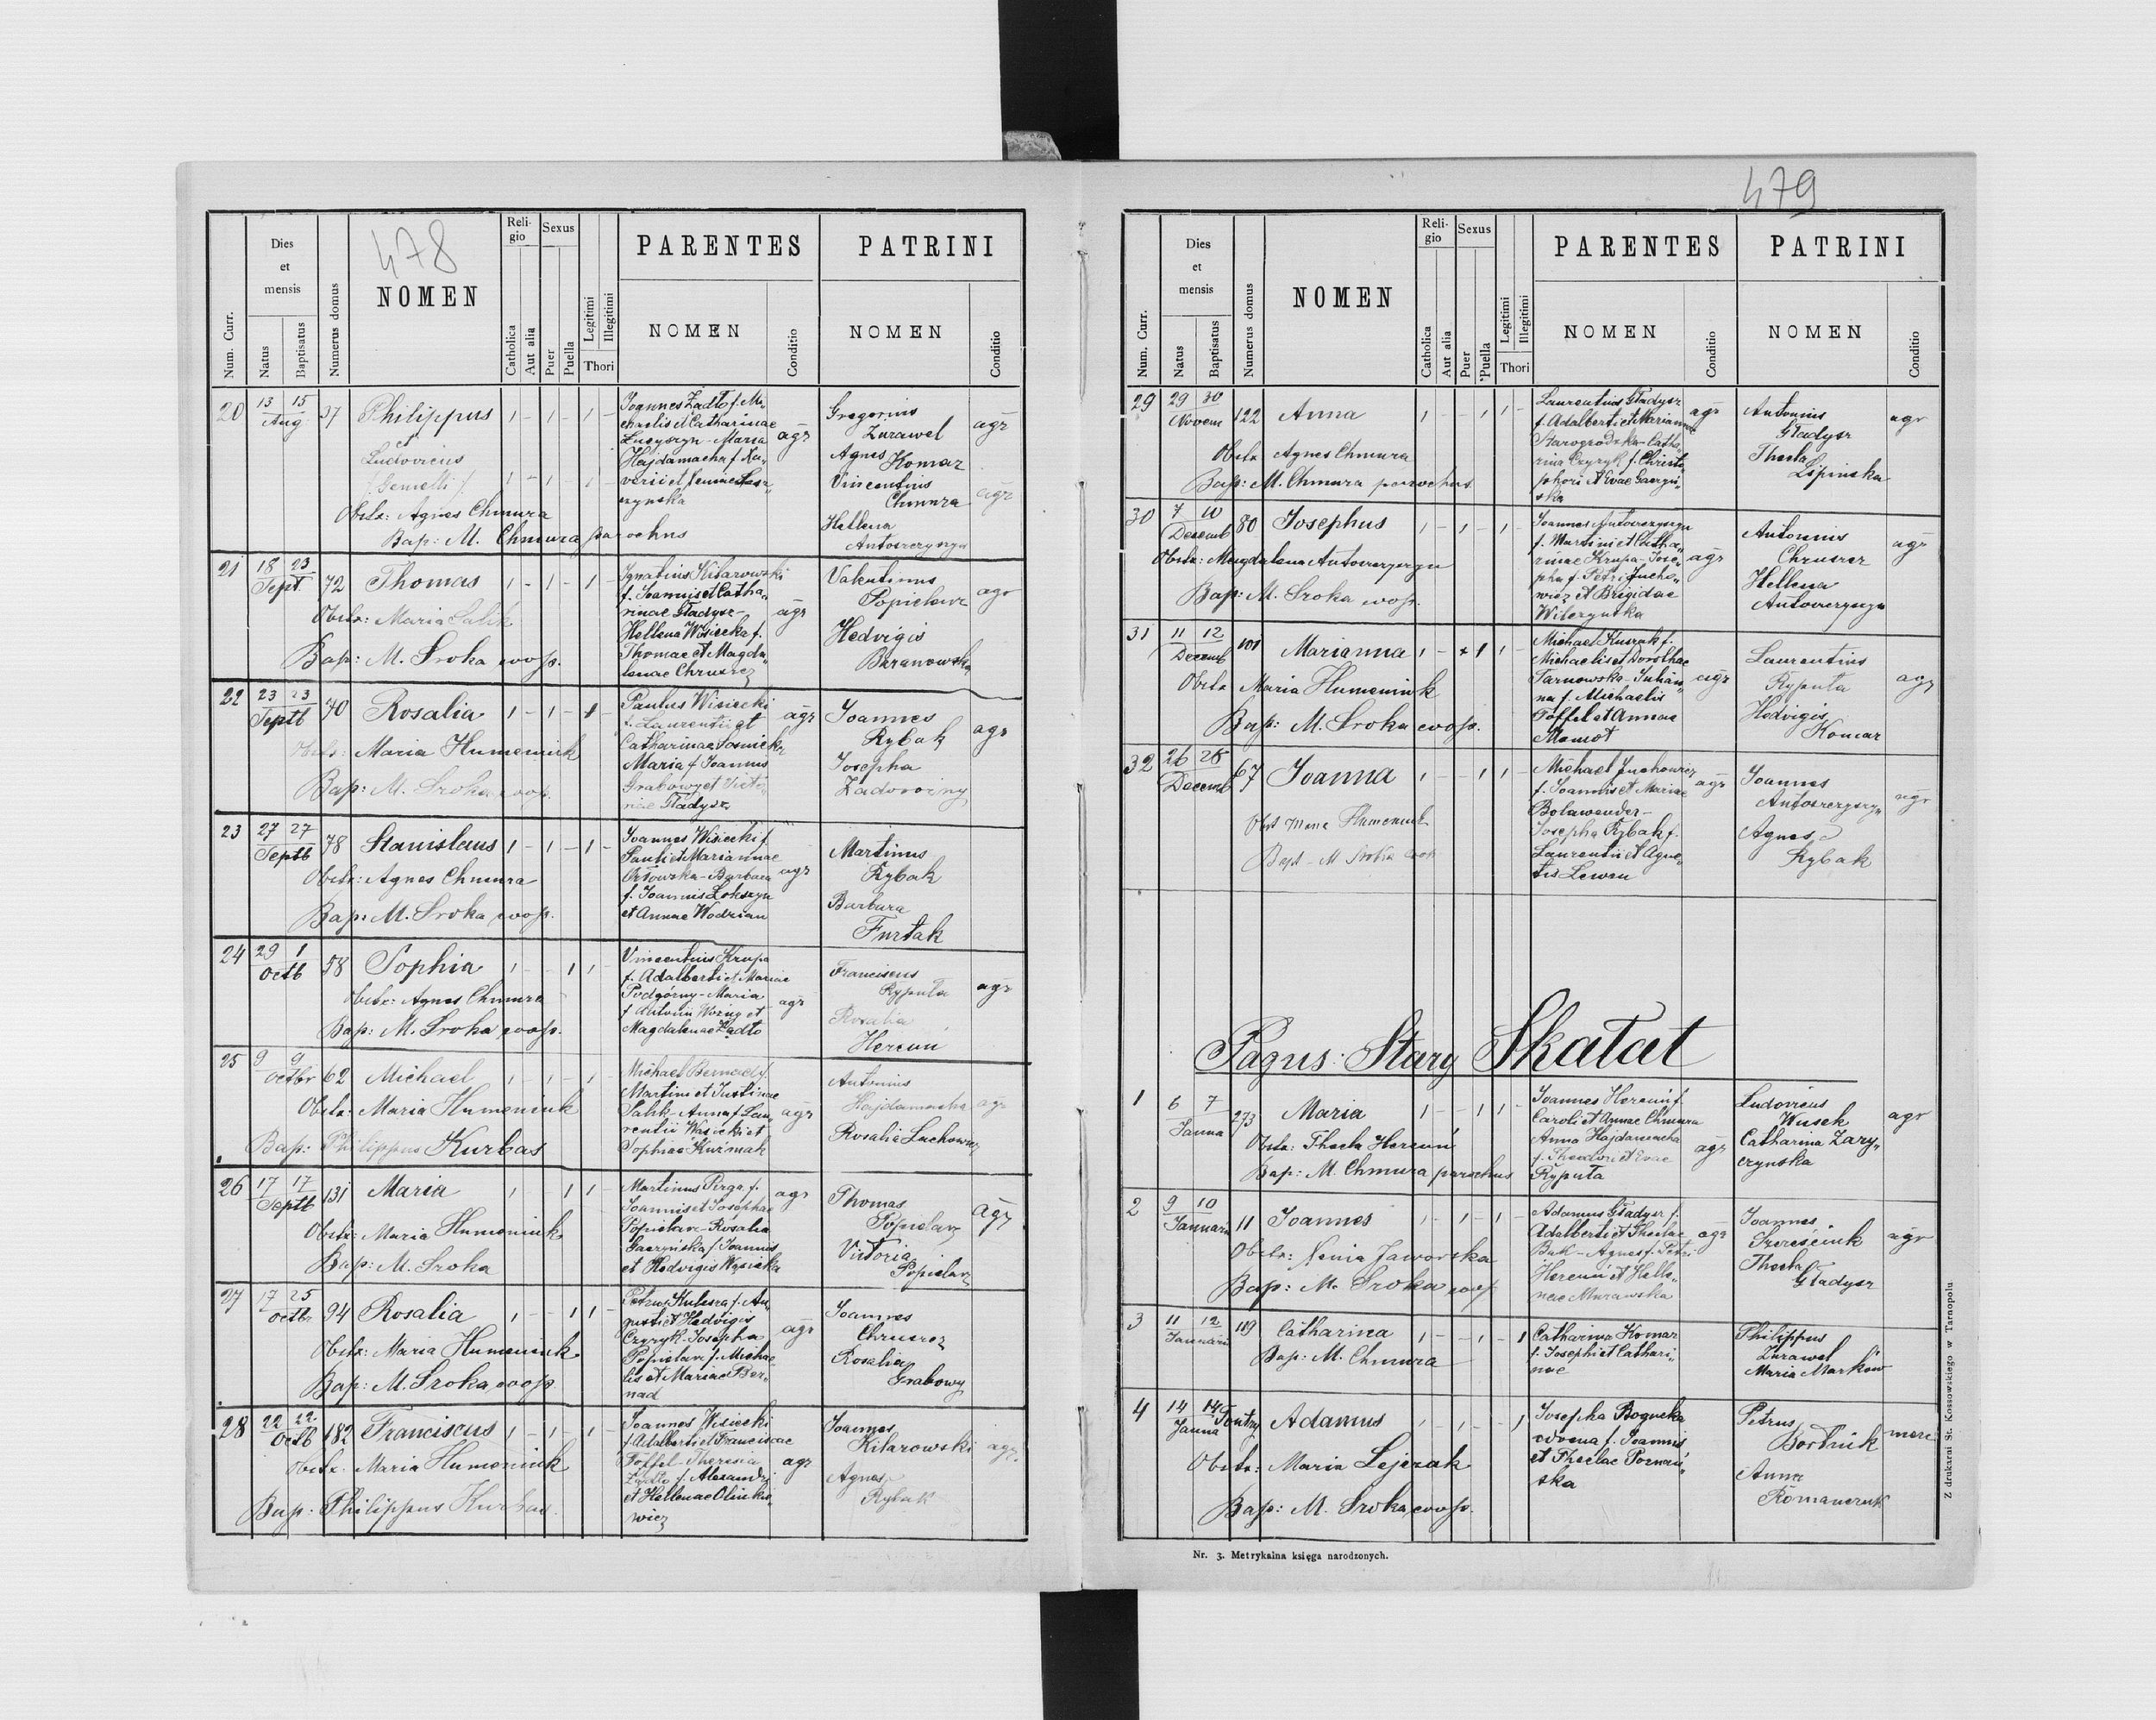 478
Num. Curr.
Dies et mensis
Natus
Baptisatus
Numerus domus
NOMEN
Religio
Catholica
Aut alia
Sexus
Puer
Puella
Legitimi
Illegitimi
Thori
PARENTES
NOMEN
Conditio
PATRINI
NOMEN
Conditio
20 13 15 Aug 37 Philippus
et
Ludovicus
/Gemelli/
Obstx: Agnes Chmura
Bap: M. Chmura parochus
Joannes Żadło f. Mi„
chaelis et Catharinae
Maria
Hajdamacha f. Xa„
verii et
agr
Gregorius
Żurawel
Agnes Komar
Vincentius
Chmura
Hellena
Antoszczyszyn
agr
agr
21 18 23 Sept 72 Thomas
Obstx: Maria Salik
Bap: M. Sroka coop.
Ignatius Kitarowski
f. Joannis et Catha„
rinae Gładysz –
Hellena Wisiecka f.
Thomae et Magda„
lenae Chruszcz
agr
Valentinus
Popielarz
Hedvigis
Baranowska
agr
22 23 23 Septb 70 Rosalia
Obstx: Maria Humeniuk
Bap: M. Sroka coop.
Paulus Wisiecki
f. Laurentii et
Catharinae Sosnicka
Maria f Joannis
Grabowy et Victo„
riae Gładysz
agr
Joannes
Rybak
Josepha
Zadvorny
agr
23 27 27 Septb 78 Stanislaus
Obstx: Agnes Chmura
Bap: M. Sroka coop.
Joannes Wisiecki f
Pauli et Mariannae
Orłowska – Barbara
f. Joannis Lokszyn
et Annae Wodzian
agr
Martinus
Rybak
Barbara
Furtak
24 29 1 Octb 58 Sophia
Obstx: Agnes Chmura
Bap: M. Sroka coop.
Vincentius Krupa
f. Adalberti et Mariae
Podgórny – Maria
f Antonii Woźny et
Magdalenae Żądło
agr
Franciscus
Ryputa
Rosalia
Hercuń
agr
25 9 9 Octbr 62 Michael
Obstx: Maria Humeniuk
Bap: Philippus Kurbas
Michael Bernad f.
Martini et Justinae
Salik – Anna f Lau„
rentii Wisiecki et
Sophiae Kuźniak
agr
Antonius
Hajdamacha
Rosalia Luchowicz
agr
26 17 17 Septb 131 Maria
Obstx: Maria Humeniuk
Bap: M. Sroka
Martinus Pirga f.
Joannis et Josephae
Popielarz – Rosalia
Gaczyńska f. Joannis
et Hedvigis Wąsicka
agr
Thomas
Popielarz
Victoria
Popielarz
agr
27 17 25 Octbr 94 Rosalia
Obstx: Maria Humeniuk
Bap: M. Sroka coop
Petrus Kulesza f. Au„
gusti et Hedvigis
Czyżyk – Josepha
Popielarz f. Michae
lis et Mariae Ber„
nad
agr
Joannes
Chruszcz
Rosalia
Grabowy
28 22 22 Octb 182 Franciscus
Obstx: Maria Humeniuk
Bap: Philippus Kurbas
Joannes Wisiecki
f Adalberti et Franciscae
Töffel – Theresia
Żądło f. Alexandri
et Hellenae Olinkie„
wicz
agr
Joannes
Kitarowski
Agnes
Rybak
agr.
479
Num. Curr.
Dies et mensis
Natus
Baptisatus
Numerus domus
NOMEN
Religio
Catholica
Aut alia
Sexus
Puer
Puella
Legitimi
Illegitimi
Thori
PARENTES
NOMEN
Conditio
PATRINI
NOMEN
Conditio
29 29 30 Novem 122 Anna
Obstx Agnes Chmura
Bap: M. Chmura parochus
Laurentius Gładysz
f. Adalberti et Marianna
Starogrodzka – Catha„
rina Czyzyk f. Christo„
phori et Evae Gaczyń„
ska
agr
Antonius
Gładysz
Thecla
Lipinska
agr
30 7 10 Decemb 80 Josephus
Obstx: Magdalena Antoszczyszyn
Bap: M. Sroka coop.
Joannes Antoszczyszyn
f. Martini et Catha„
rinae Krupa – Jose„
pha f. Petri Jucho„
wicz et Brigidae
Wilczyńska
agr
Antonius
Chruszcz
Hellena
Antoszczyszyn
agr
31 11 12 Decemb 101 Marianna
Obstx Maria Humeniuk
Bap: M. Sroka coop.
Michael Kuszak f.
Michaelis et Dorothae
Tarnowska – Juhan„
na f. Michaelis
Töffel et Annae
Mamot
agr
Laurentius
Ryputa
Hedvigis
Komar
agr
32 26 28 Decemb 67 Joanna
Obst Maria Humeniuk
Bap – M Sroka coop
Michael Juchowicz
f. Joannis et Mariae
Bolawender –
Josepha Rybak f.
Laurentii et Agne„
tis Lewen
agr
Joannes
Antoszczyszyn
Agnes
Rybak
agr
Pagus: Stary Skałat
1 6 7 Janua 273 Maria
Obstx: Thecla Hercuń
Bap: M. Chmura parochus
Joannes Hercuń f.
Caroli et Annae Chmura
Anna Hajdamacha
f. Theodori et Evae
Ryputa
agr
Ludovicus
Wusek
Catharina Zary„
czynska
agr
2 9 10 Januaris 11 Joannes
Obstx: Xenia Jaworska
Bap: M. Sroka coop
Adamus Gładysz f.
Adalberti et Theclae
Buk – Agnes f. Petri
Hercuń et Helle„
nae Murawska
agr
Joannes
Szereściuk
Thecla
Gładysz
agr
3 11 12 Januaris 119 Catharina
Bap: M. Chmura
Catharina Komar
f. Josephi et Cathari„
nae
Philippus
Żurawel
Maria Marków
4 14 14 Janua Adamus
Obstx: Maria Lejczak
Bap: M. Sroka coop.
Josepha Bogucka
advena f. Joannis
et Theclae Poznań„
ska
Petrus
Bortnik
Anna
Romanczuk
merc
Nr. 3. Metrykalna księga narodzonych.
Z drukarni St. Kossowskiego w Tarnopolu